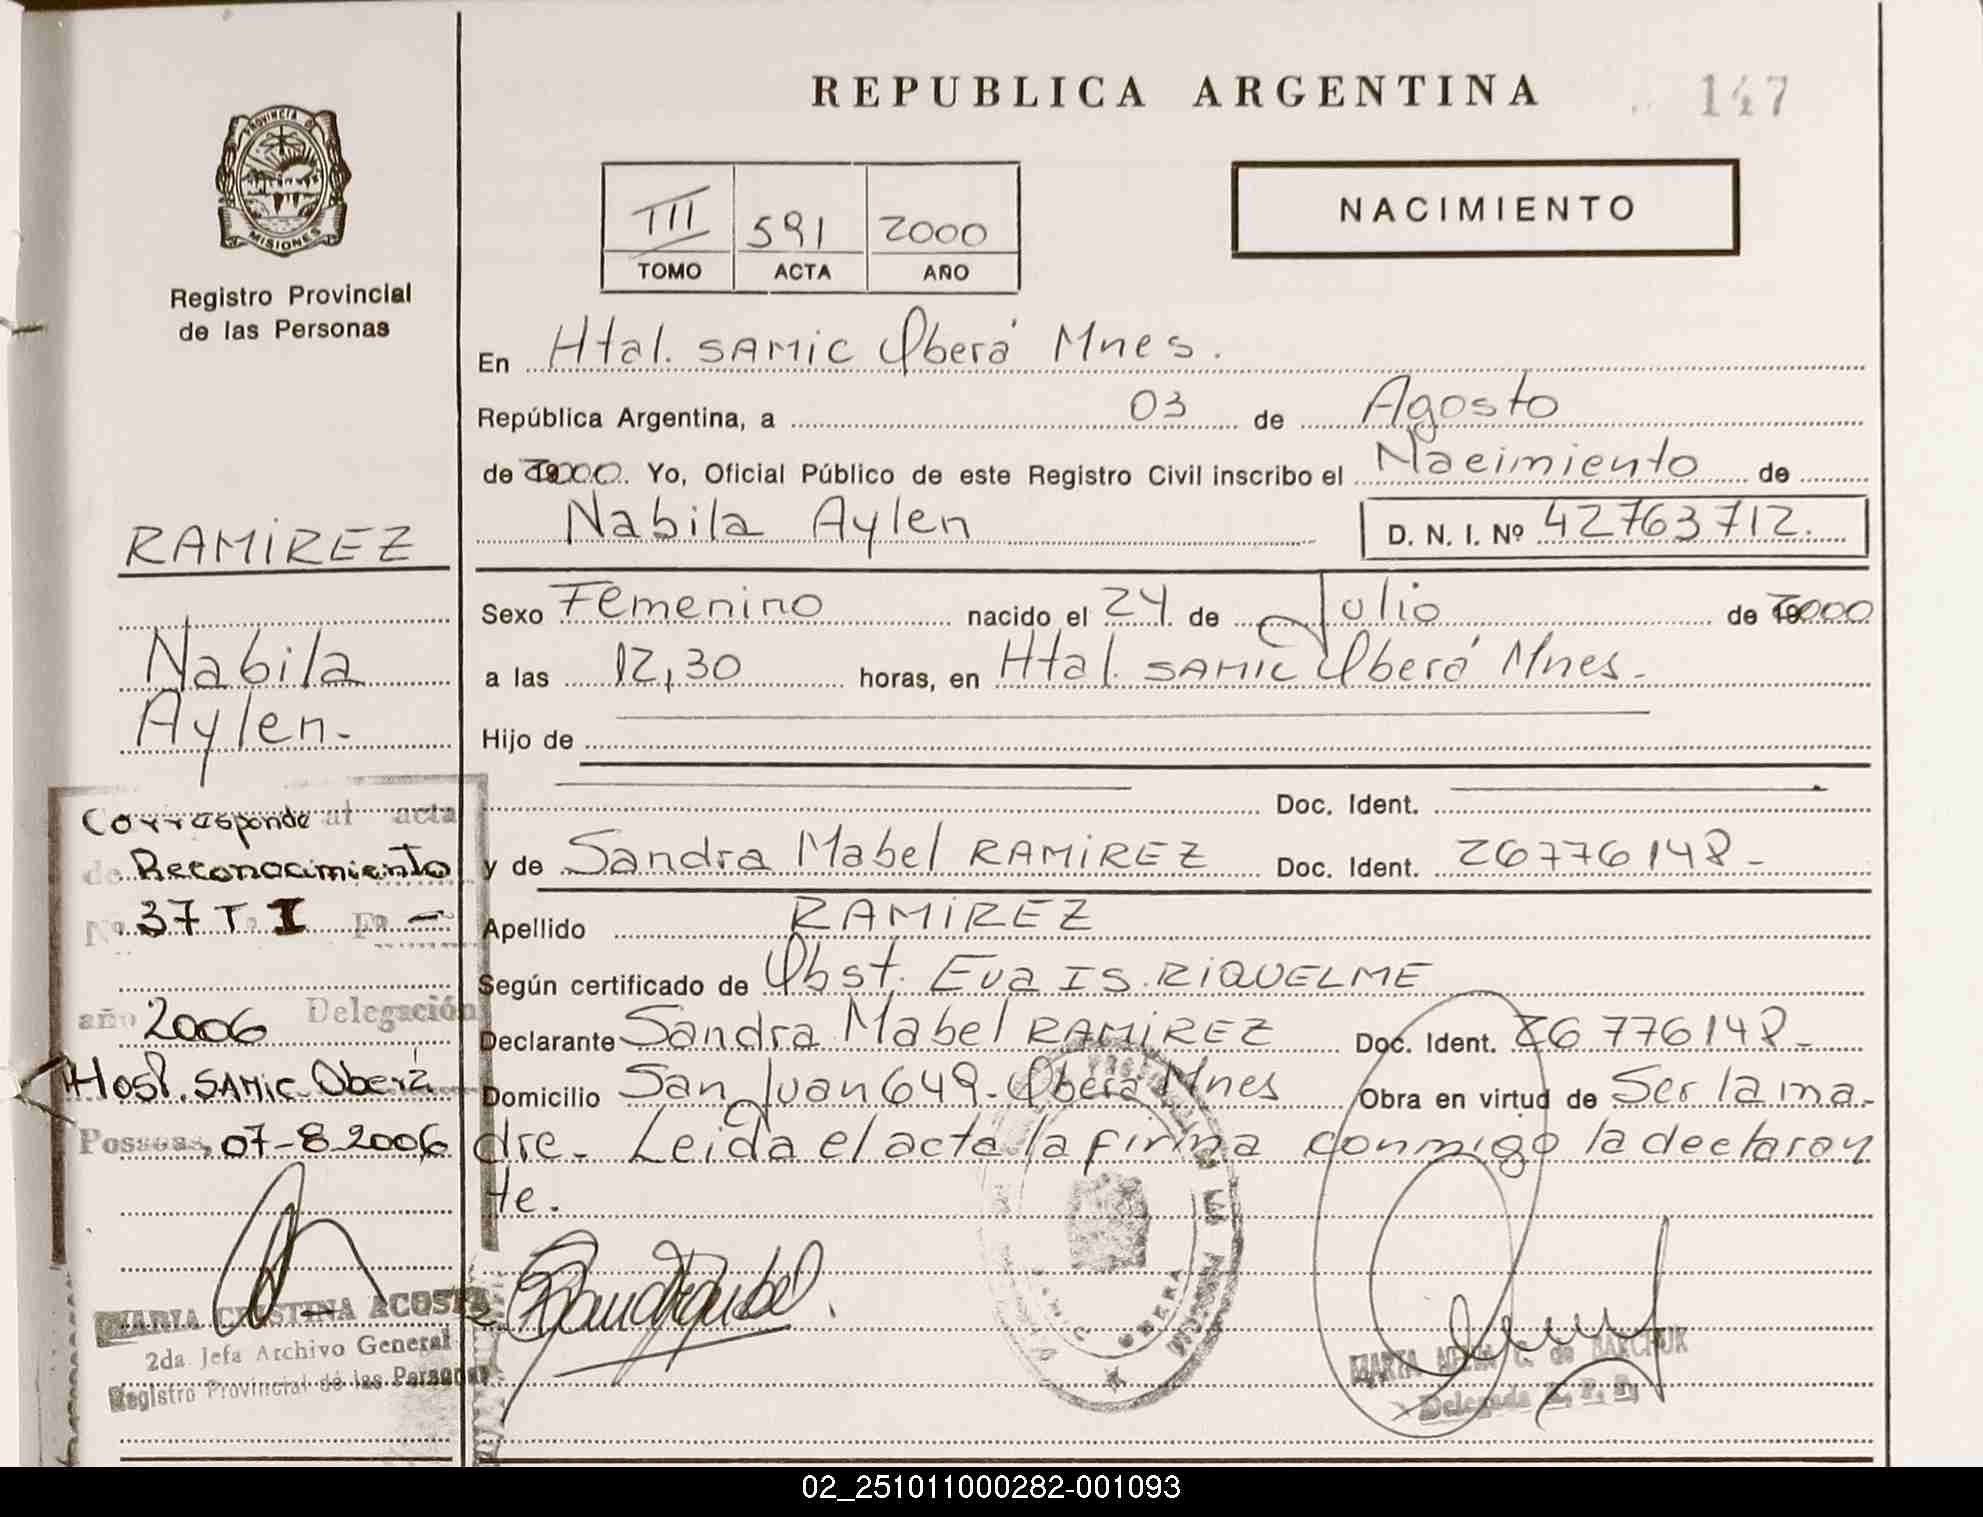 REPUBLICA ARGENTINA
147
PROVINCIA DE
MISIONES
Registro Provincial
de las Personas
III 591 2000
TOMO ACTA AÑO
NACIMIENTO
En Htal. SAMIC Oberá Mnes.
República Argentina, a 03 de Agosto
de 2000. Yo, Oficial Público de este Registro Civil inscribo el Nacimiento de
Nabila Aylen D. N. I. Nº 42763712.
Sexo Femenino nacido el 24 de Julio de 2000
a las 12,30 horas, en Htal. SAMIC Oberá Mnes.
Hijo de
Doc. Ident.
y de Sandra Mabel RAMIREZ Doc. Ident. 26776148-
Apellido RAMIREZ
Según certificado de Obst. Eva IS. RIQUELME
Declarante Sandra Mabel RAMIREZ Doc. Ident. 26776148-
Domicilio San Juan 649- Oberá Mnes Obra en virtud de Ser la ma-
dre- Leida el acta la firma conmigo la declaran
te.
RAMIREZ
Nabila
Aylen-
Corresponde al acta
de Reconocimiento
Nº 37 Tº I Fº -
año 2006 Delegación
Hosp. SAMIC Oberá
Posadas, 07-8-2006
MARIA CRISTINA ACOSTA
2da Jefa Archivo General
Registro Provincial de las Personas
OBERA
MARTA C. de BARCHUK
Delegada R. P. P.
02_251011000282-001093